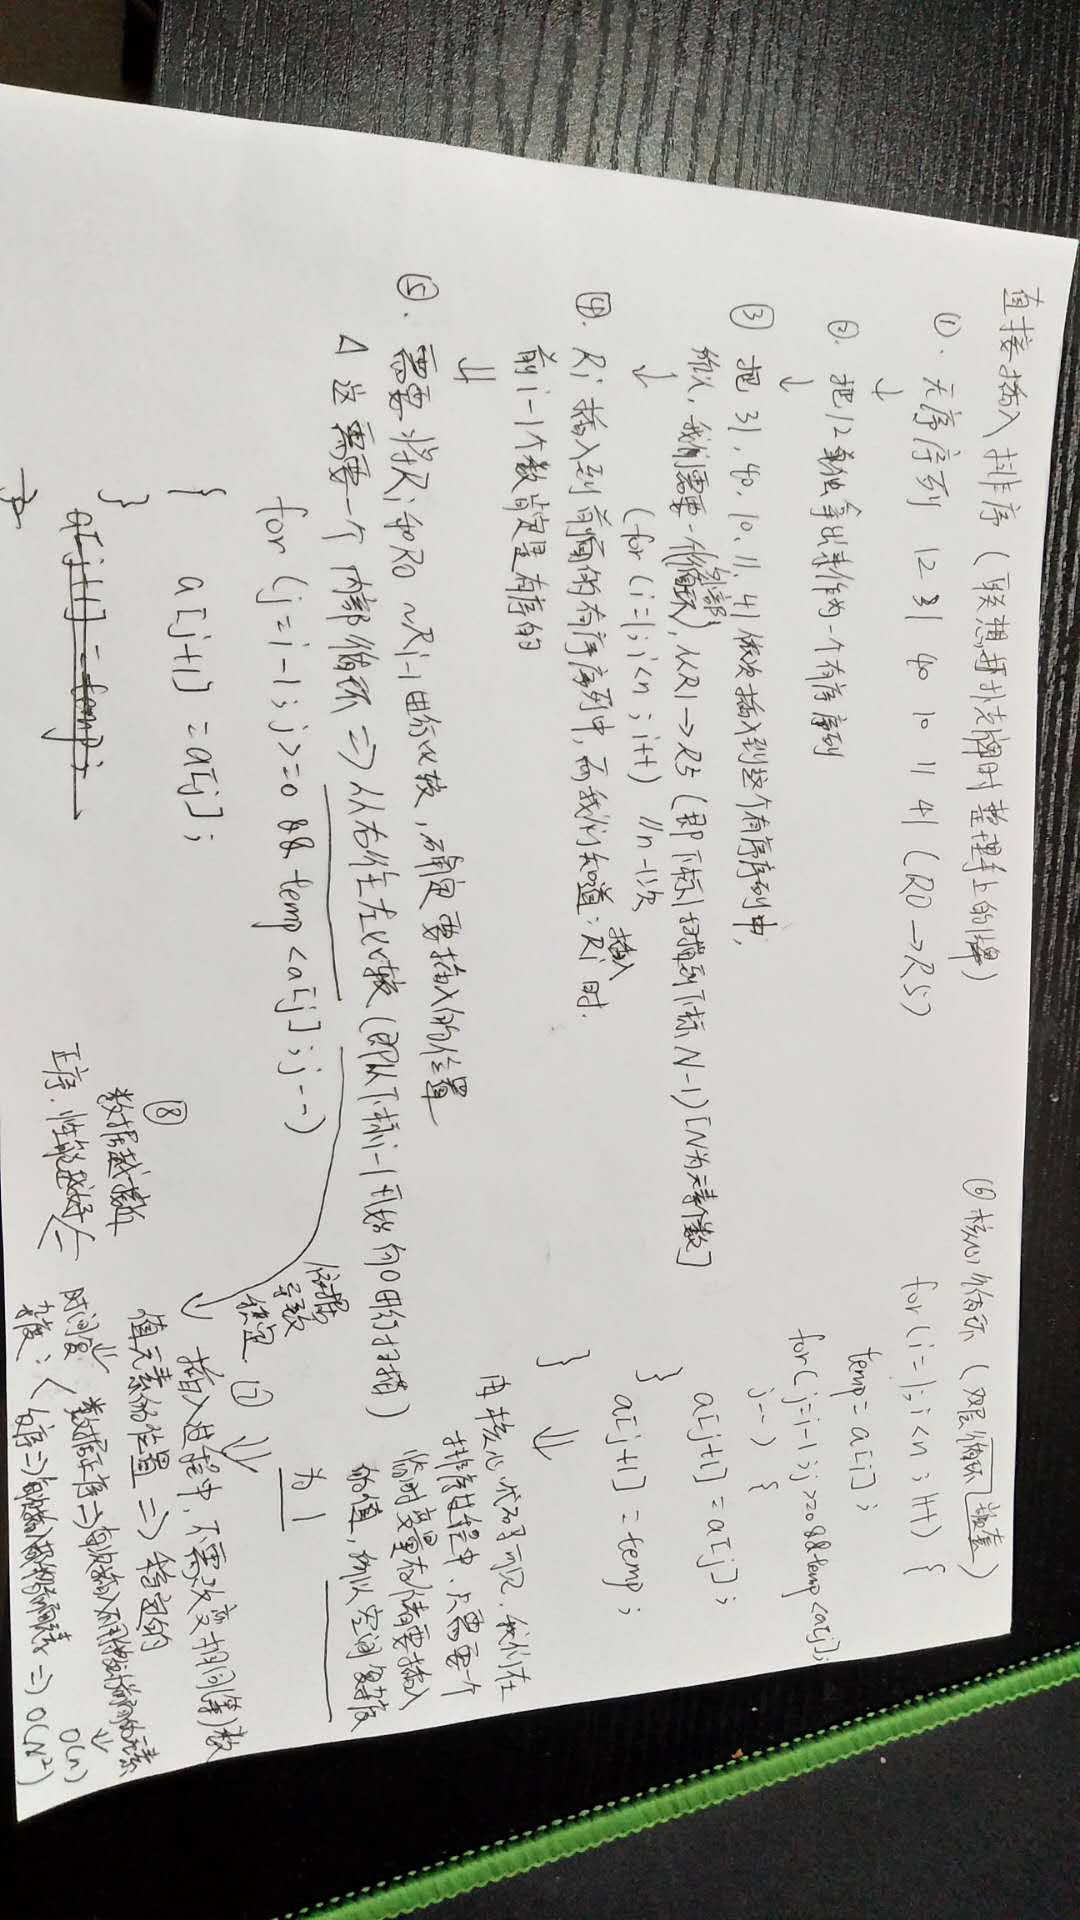 直接插入排序（联想打扑克牌时整理手上的牌）
①. 无序序列 12 31 40 10 11 41 (R0→R5)
↓
②. 把12单独拿出来作为一个有序序列
↓
③ 把 31, 40, 10, 11, 41 依次插入到这个有序序列中,
所以, 我们需要一个(外部循环), 从R1→R5 (即下标1扫描到下标N-1) [N为元素个数]
↓ (for (i=1; i<n ; i++) //n-1次
④. Ri 插入到前面的有序序列中, 而我们知道: 插入Ri时.
前i-1个数肯定是有序的
⇓
⑤. 需要将Ri和R0 ~Ri-1进行比较, 确定要插入的位置
△ 这需要一个内部循环 => 从右往左比较 (即从下标i-1开始向0进行扫描)
for (j=i-1; j>=0 && temp<a[j]; j--)
{ a[j+1] =a[j];
}
a[j+1] = temp;
⑥ 核心循环 (双层循环嵌套)
for (i=1; i<n ; i++) {
temp= a[i];
for( j=i-1; j>=0 && temp<a[j];
j--) {
a[j+1] = a[j];
}
a[j+1] = temp;
}
⇓
由核心代码可见. 我们在
排序过程中. 只需要一个
临时变量存储要插入
的值, 所以空间复杂度
为 1
依据
导致
稳定
⑦ ⇓
插入过程中, 不需改变相同(等)数
值元素的位置 => 稳定的
⇓
时间复
杂度:
数据正序=>每次插入不用移动前面的元素
⇓
O(n)
反序=>每次插入都移动前面元素 => O(N²)
⑧
数据越接近
正序. 性能越好 <=